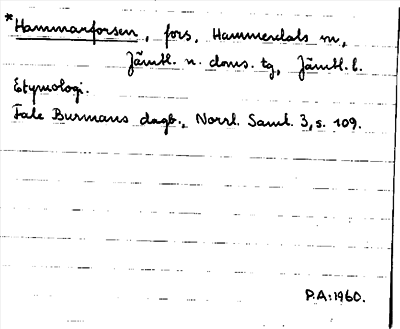 *Hammarforsen, fors, Hammerdals sn,
Jämtl. n. doms. tg, Jämtl. l.
Etymologi.
Fale Burmans dagb., Norrl. Saml. 3, s. 109.
P.A:1960.